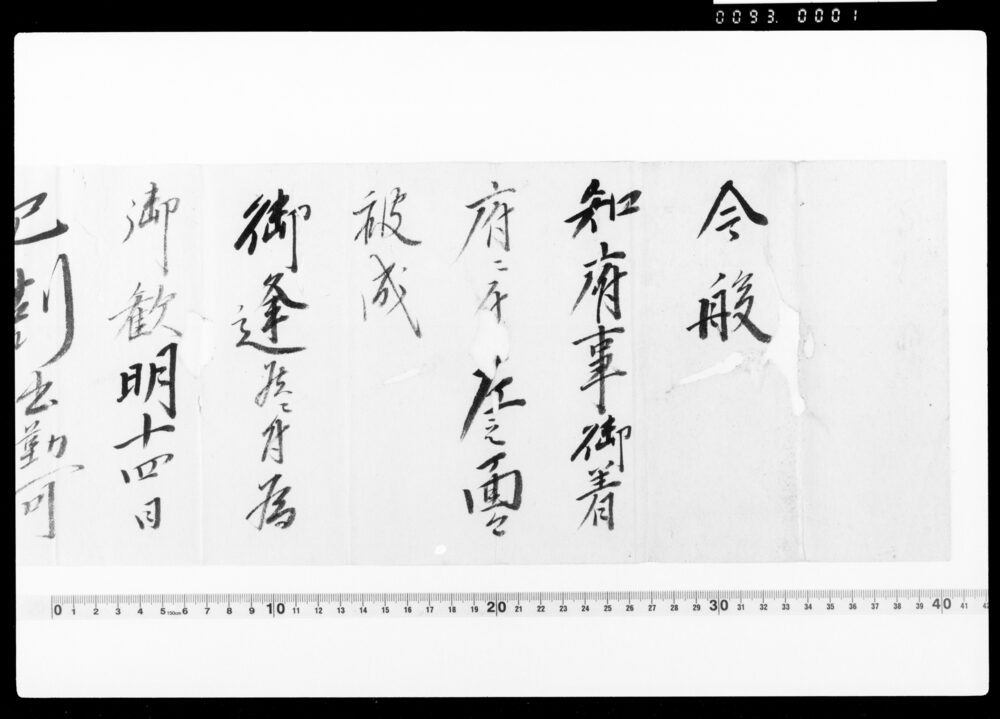 0093. 0001
今般
知府事御着
府ニ付 之面々
被成
御逢候ニ付為
御歓明十四日
巳刻出勤可
0 1 2 3 4 5 150cm 6 7 8 9 10 11 12 13 14 15 16 17 18 19 20 21 22 23 24 25 26 27 28 29 30 31 32 33 34 35 36 37 38 39 40 41